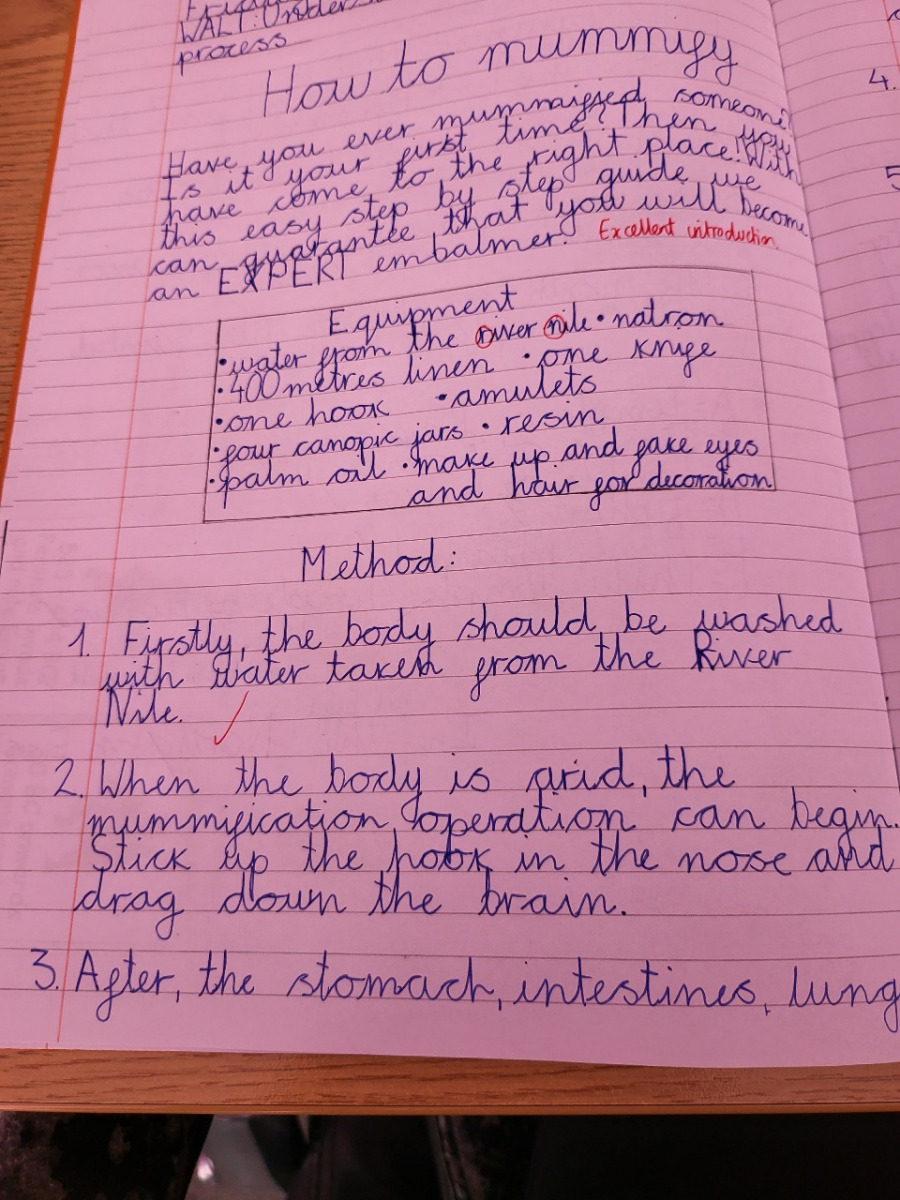 WALT: Under
process
How to mummify
Have you ever mummaified someone?
Is it your first time? Then you
have come to the right place! With
this easy step by step guide we
can guarantee that you will become
an EXPERT embalmer. Excellent introduction.
Equipment
• water from the river nile • natron
• 400 metres linen • one knife
• one hook • amulets
• four canopic jars • resin
• palm oil • make up and fake eyes
and hair for decoration
Method:
1. Firstly, the body should be washed
with water taken from the River
Nile. ✓
2. When the body is arid, the
mummification operation can begin.
Stick up the hook in the nose and
drag down the brain.
3. After, the stomach, intestines, lung
4.
5